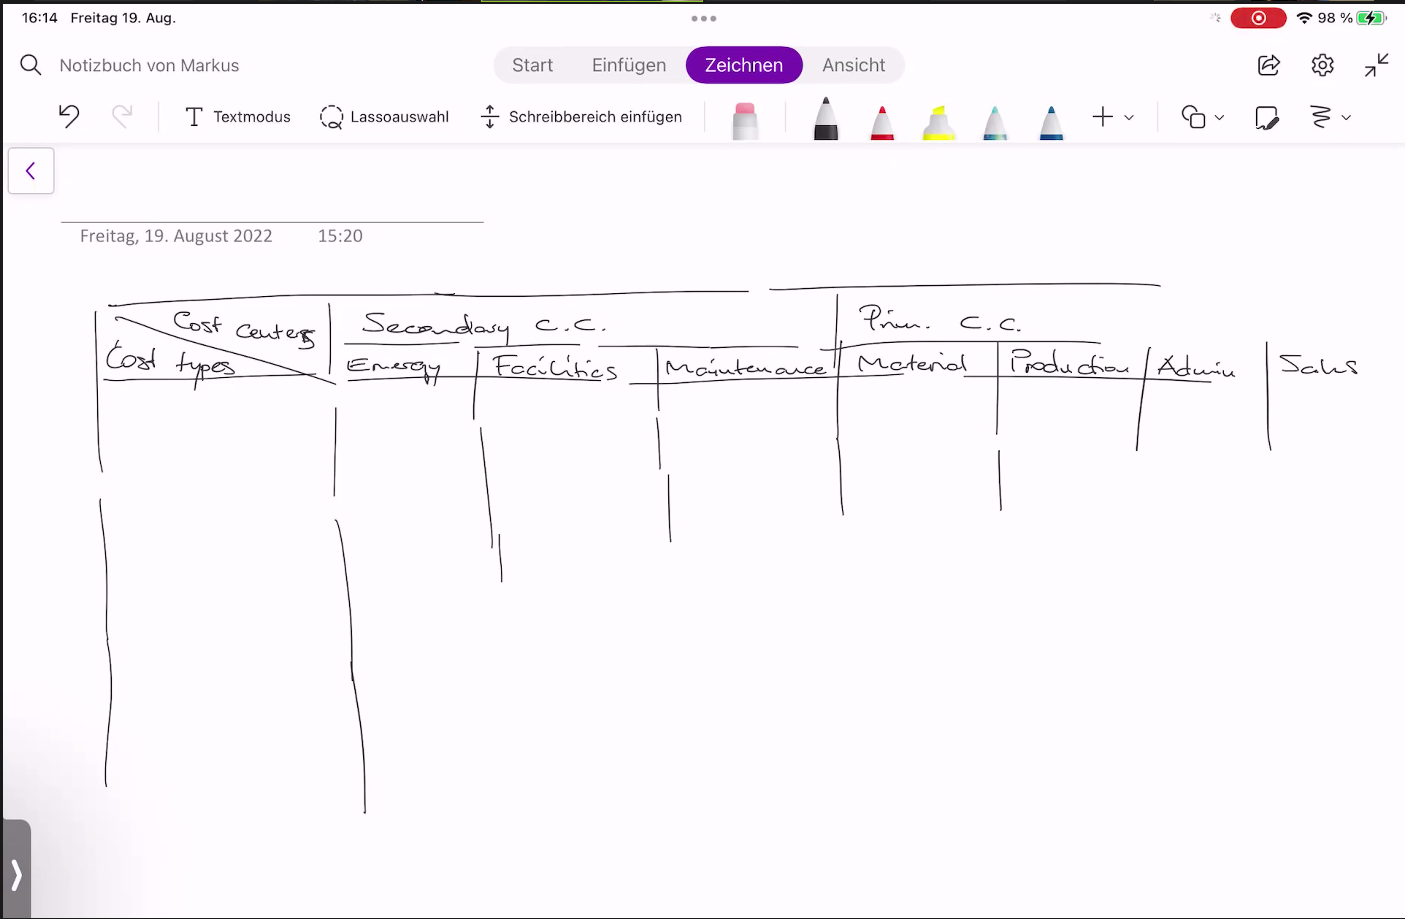 16:14 Freitag 19. Aug. 98 %
Notizbuch von Markus Start Einfügen Zeichnen Ansicht
Textmodus Lassoauswahl Schreibbereich einfügen
Freitag, 19. August 2022 15:20
Cost centers Secondary C.C. Prim. C.C.
Cost types Energy Facilities Maintenance Material Production Admin Sales